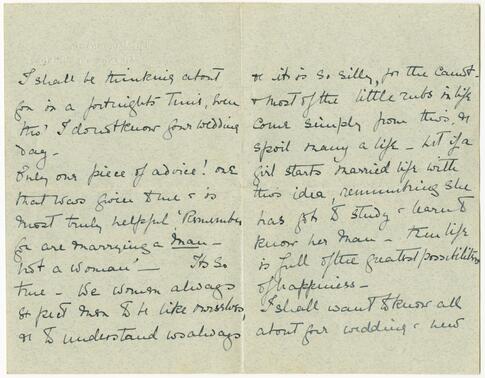 I shall be thinking about
you in a fortnights time, even
tho' I don't know your wedding
day -
Only one piece of advice! one
that was given to me & is
most truly helpful 'Remember
you are marrying a man -
not a woman' - Its so
true - We women always
expect men to be like ourselves,
& to understand us always
& it is so silly, for they can't -
& most of the little rubs in life
come simply from this, &
spoil many a life - but if a
girl starts married life with
this idea, remembering she
has got to study & learn to
know her man - then life
is full of the greatest possibilities
of happiness -
I shall want to know all
about your wedding & new